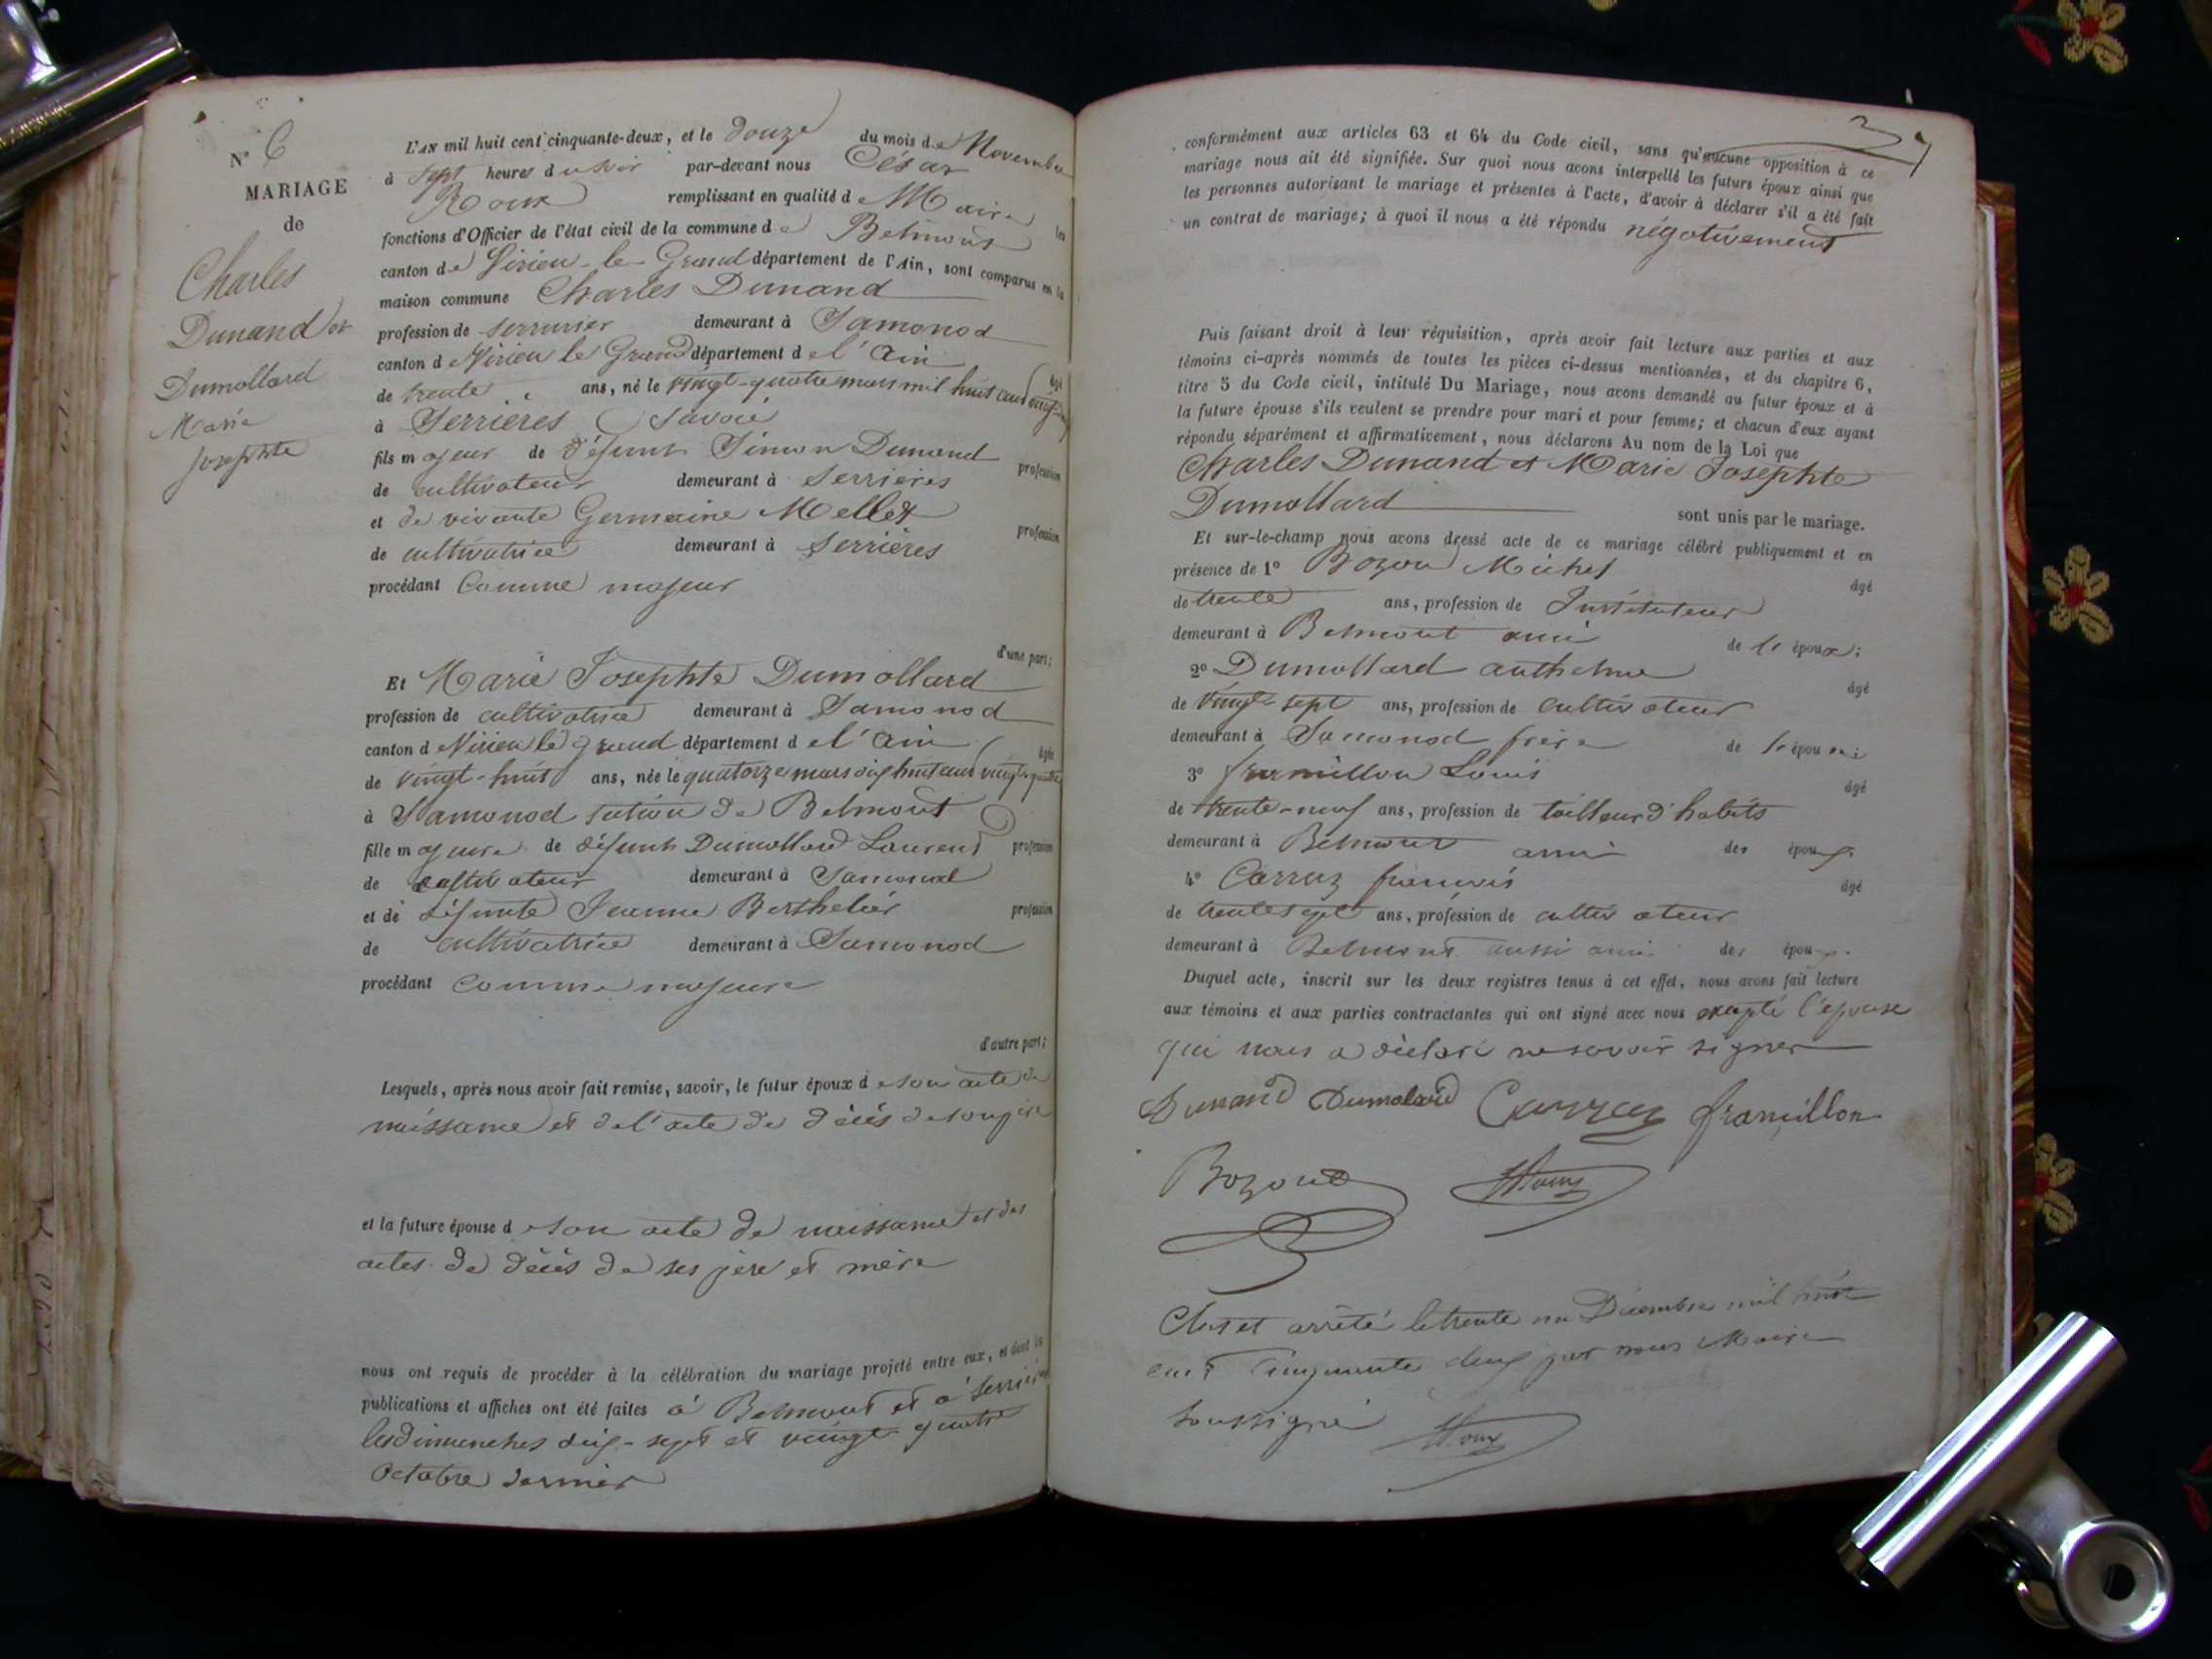 N° 6
MARIAGE
de
Charles
Dunand et
Dumollard
Marie
Josephte
L'AN mil huit cent cinquante-deux, et le douze du mois de Novembre
à sept heures du soir par-devant nous César
Roux remplissant en qualité de Maire les
fonctions d'Officier de l'état civil de la commune de Belmont
canton de Virieu-le-Grand département de l'Ain, sont comparus en la
maison commune Charles Dunand
profession de serrurier demeurant à Samonod
canton de Virieu le Grand département de l'Ain âgé
de trente ans, né le vingt-quatre mars mil huit cent
à Serrières (Savoie)
fils majeur de défunt Simon Dunand profession
de cultivateur demeurant à Serrières
et de vivante Germaine Mellet profession
de cultivatrice demeurant à Serrières
procédant comme majeur
d'une part;
Et Marie Josephte Dumollard
profession de cultivatrice demeurant à Samonod
canton de Virieu le grand département de l'Ain âgée
de vingt-huit ans, née le quatorze mars dix huit cent vingt-quatre
à Samonod section de Belmont
fille majeure de défunt Dumollard Laurent profession
de cultivateur demeurant à Samonod
et de défunte Jeanne Berthelier profession
de cultivatrice demeurant à Samonod
procédant comme majeure
d'autre part;
Lesquels, après nous avoir fait remise, savoir, le futur époux de son acte de
naissance et de l'acte de décès de son père
et la future épouse de son acte de naissance et des
actes de décès de ses père et mère
nous ont requis de procéder à la célébration du mariage projeté entre eux, et dont les
publications et affiches ont été faites à Belmont et à Serrières
les dimanches dix-sept et vingt quatre
octobre dernier
37
conformément aux articles 63 et 64 du Code civil, sans qu'aucune opposition à ce
mariage nous ait été signifiée. Sur quoi nous avons interpellé les futurs époux ainsi que
les personnes autorisant le mariage et présentes à l'acte, d'avoir à déclarer s'il a été fait
un contrat de mariage; à quoi il nous a été répondu négativement
Puis faisant droit à leur réquisition, après avoir fait lecture aux parties et aux
témoins ci-après nommés de toutes les pièces ci-dessus mentionnées, et du chapitre 6,
titre 5 du Code civil, intitulé Du Mariage, nous avons demandé au futur époux et à
la future épouse s'ils veulent se prendre pour mari et pour femme; et chacun d'eux ayant
répondu séparément et affirmativement, nous déclarons Au nom de la Loi que
Charles Dunand et Marie Josephte
Dumollard sont unis par le mariage.
Et sur-le-champ nous avons dressé acte de ce mariage célébré publiquement et en
présence de 1° Bozon Michel âgé
de trente ans, profession de Instituteur
demeurant à Belmont ami de l'époux;
2° Dumollard anthelme âgé
de vingt-sept ans, profession de cultivateur
demeurant à Samonod frère de l'épouse
3° framillon Louis âgé
de trente-neuf ans, profession de tailleur d'habits
demeurant à Belmont ami des époux.
4° Carraz francois âgé
de trente sept ans, profession de cultivateur
demeurant à Belmont aussi ami des époux.
Duquel acte, inscrit sur les deux registres tenus à cet effet, nous avons fait lecture
aux témoins et aux parties contractantes qui ont signé avec nous excepté l'épouse
qui nous a déclaré ne savoir signer
Dunand Dumolard Carraz framillon
Bozon Roux
Clos et arrêté le trente un Décembre mil huit
cent cinquante deux par nous Maire
soussigné Roux